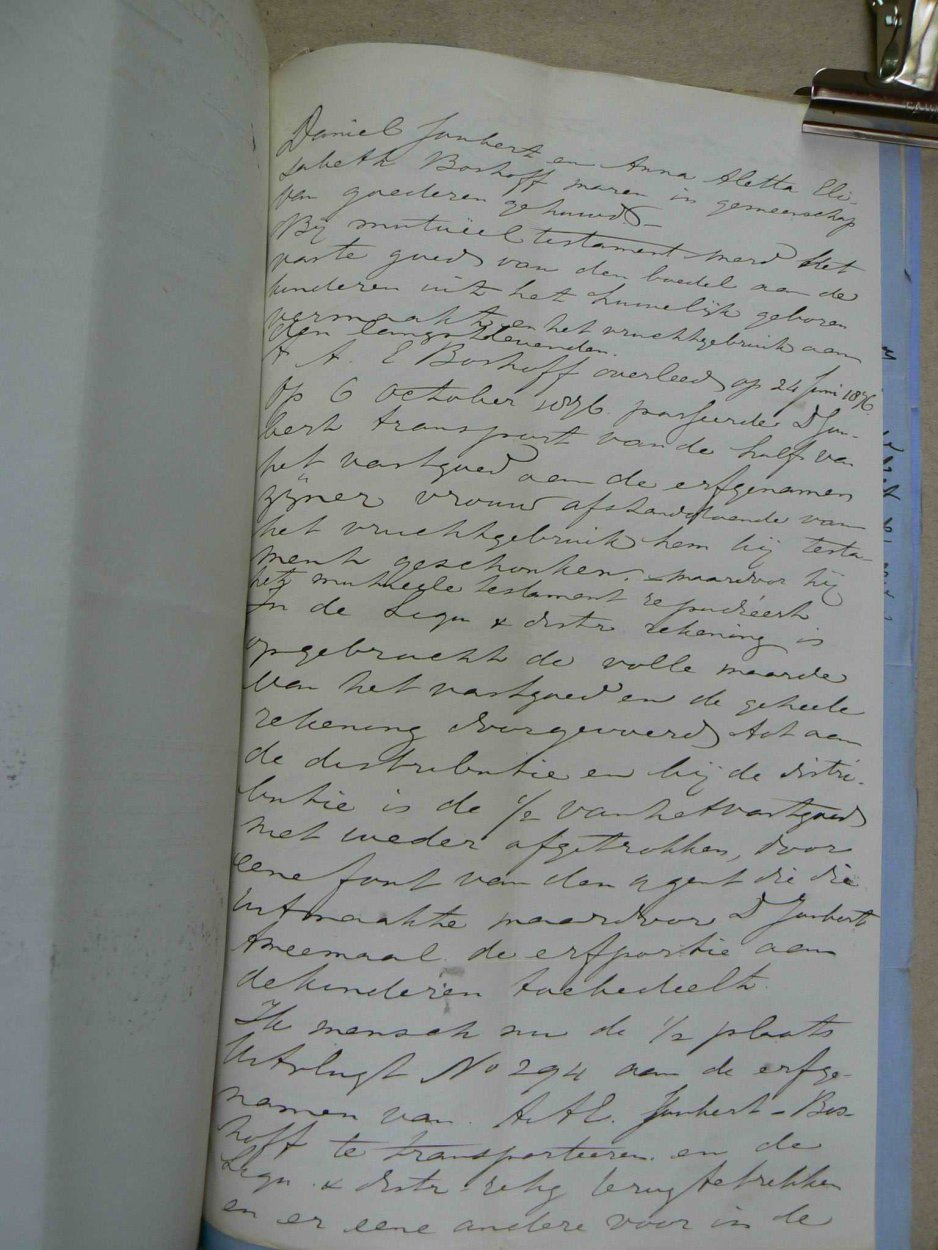 Daniel Joubert en Anna Aletta Eli-
sabeth Boshoff waren in gemeenschap
van goederen gehuwd —
Bij mutueel testament werd het
vaste goed van den boedel aan de
kinderen uit het huwelijk geboren
vermaakt, en het vruchtgebruik aan
den langstlevenden.
A E Boshoff overleed op 24 Juni 1876.
Op 6 October 1876 passeerde D Jou-
bert transport van de half van
het vastgoed aan de erfgenamen
zijner vrouw afstanddoende van
het vruchtgebruik hem bij testa-
ment geschonken. – waardoor hij
het mutueele testament repudieert
In de Liqu & distr rekening is
opgebracht de volle waarde
van het vastgoed en de geheele
rekening doorgevoerd tot aan
de distributie en bij de distri-
butie is de ½ van het vastgoed
niet weder afgetrokken, door
eene fout van den agent die die
uitmaakte waardoor D Joubert
tweemaal de erfportie aan
de kinderen toebedeelt.
Ik wensch nu de ½ plaats
Uitvlugt No 294 aan de erfge-
namen van A A E. Joubert – Bos-
hoff te transporteeren en de
Liqu. & distr rekg terugtetrekken
en er eene andere voor in de